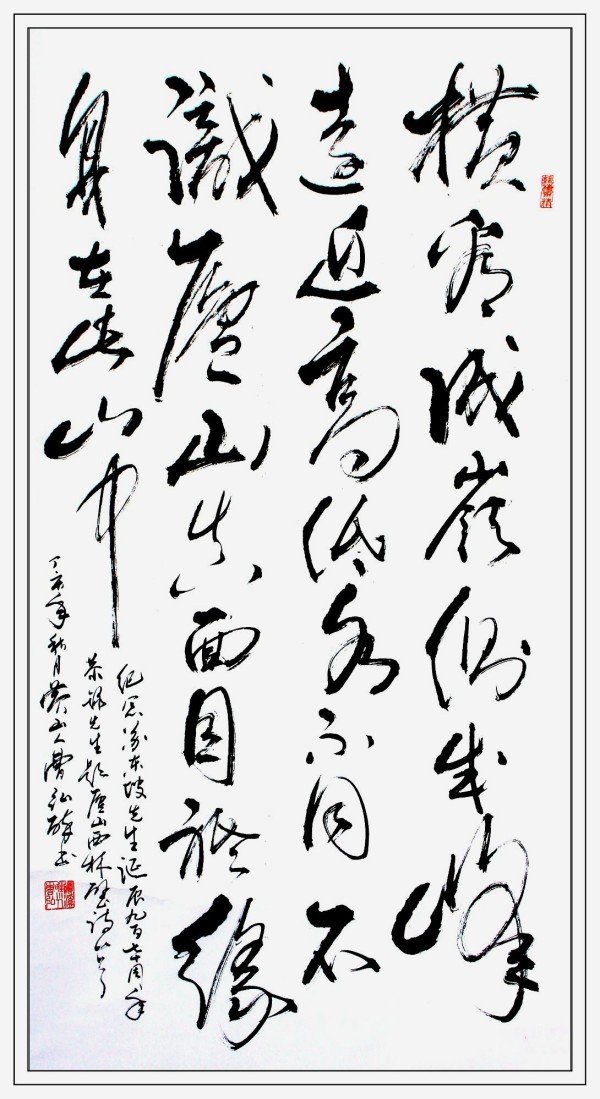 横看成嶺側成峰
遠近高低各不同不
識廬山真面目祗緣
身在此山中
纪念蘇东坡先生诞辰九百七十周年
恭録先生题庐山西林壁诗一首
丁亥年秋月